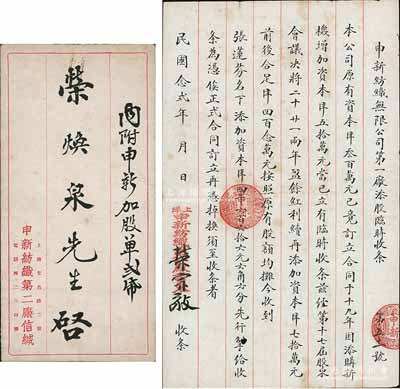 內附申新加股單弍帋
榮煥泉先生啓
申新紡織第二廠信緘
申新紡織無限公司第一廠添股臨時收條
本公司原有資本洋叁百萬元已竟訂立合同十九年因添購新
機增加資本洋五拾萬元當已立有臨時收條茲經第十七屆股東
會議決將二十廿一兩年盈餘紅利續再添加資本洋七拾萬元
前後合足洋四百念萬元按照原有股額均攤今收到
張蓮芬名下添加資本洋
元六角六分先行製給收
條為憑俟正式合同訂立再憑掉換須至收條者
上海申新紡織
收條
民國念弍年 月 日